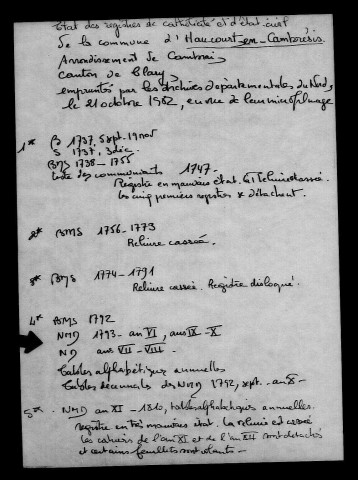 Etat des registres de catholicité et d'état-civil
de la commune d'Haucourt-en-Cambrésis
Arrondissement de Cambrai,
canton de Clary,
empruntés par les Archives départementales du Nord,
le 21 octobre 1982, en vue de leur microfilmage
1* B 1737, sept. 19 nov
S 1737, 3 déc.
BMS 1738 - 1755
liste des communiants 1747
Registre en mauvais état. cassée.
les cinq premiers registres se détachent.
2* BMS 1756-1773
Reliure cassée.
3* BMS 1774-1791
Reliure cassée. Registre disloqué.
4* BMS 1792
NMD 1793 - an VI, ans IX-X
ND ans VII - VIII.
Tables alphabétiques annuelles
Tables décennales des NMD 1792, sept. - an X
5* NMD an XI - 1810, tables alphabétiques annuelles.
registre en très mauvais état. La reliure est cassée
les cahiers de l'an XI et de l'an XII sont détachés
et certains feuillets sont volants -